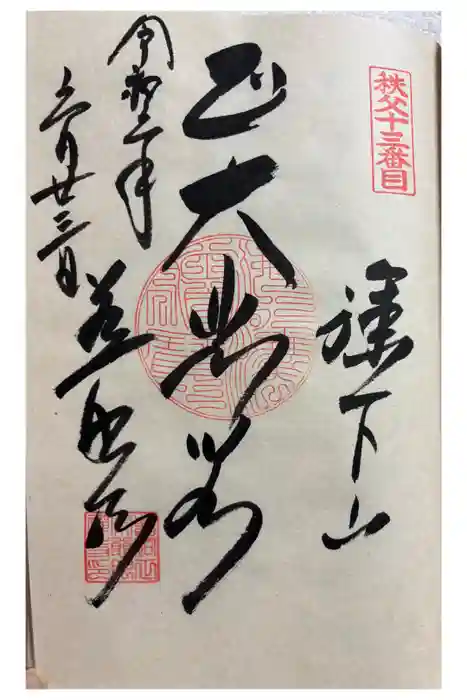 秩父十三番目
旗下山
正大悲殿
慈眼寺
令和二年
月廿三日